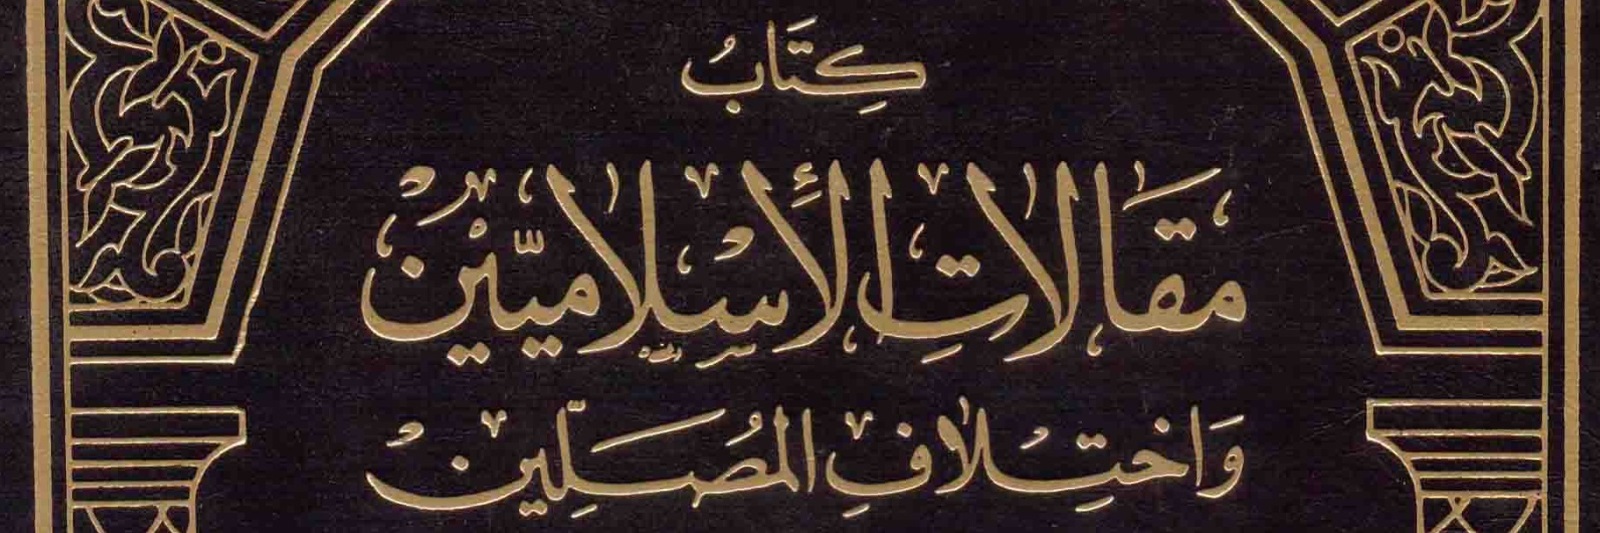 كِتَابُ
مقَالَاتِ الْإِسْلَامِيّيْنَ
وَاخْتِلَافِ المُصَلِّين